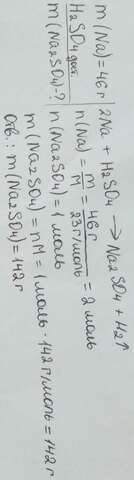 m(Na)=46г
H₂SO₄ дат.
m(Na₂SO₄)-?
2Na + H₂SO₄ → Na₂SO₄ + H₂↑
n(Na) = m/M = 46г/23г/моль = 2 моль
n(Na₂SO₄) = 1 моль
m(Na₂SO₄) = nM = 1 моль · 142 г/моль = 142 г
Отв.: m(Na₂SO₄) = 142г